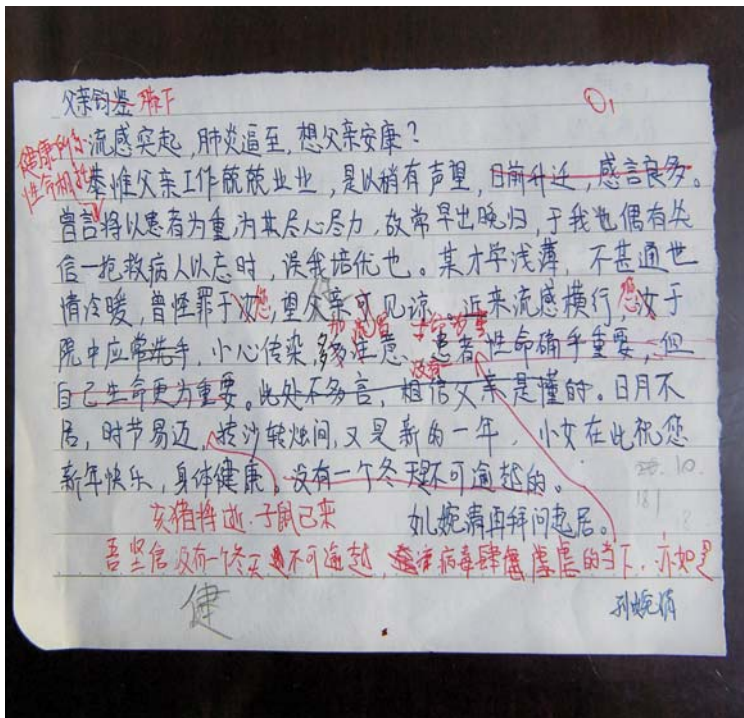 父亲钧鉴 膝下
流感突起，肺炎逼至，想父亲安康？
健康所系
性命相托
恭惟父亲工作兢兢业业，是以稍有声望，日前升迁，感言良多。
曾言将以患者为重，为其尽心尽力，故常早出晚归，于我也偶有失
信—抢救病人以忘时，误我培优也。某才学浅薄，不甚通世
情冷暖，曾怪罪于汝您，望父亲可见谅。近来流感横行，您汝于
院中应常洗手，小心传染，多多注意、患者性命确乎重要，但
没有
自己生命更为重要。此处不多言，相信父亲是懂的。日月不
居，时节易迈，转沙转烛间，又是新的一年，小女在此祝您
新年快乐，身体健康。没有一个冬天不可逾越的。
亥猪将逝，子鼠已来
女儿婉清再拜问起居。
吾坚信没有一个冬天不可逾越，病毒肆虐的当下，亦如是
健